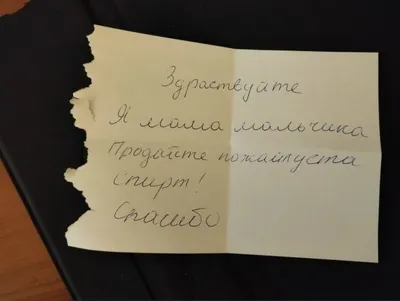 Здраствуйте
Я мама мальчика
Продайте пожайлуста
спирт!
Спасибо